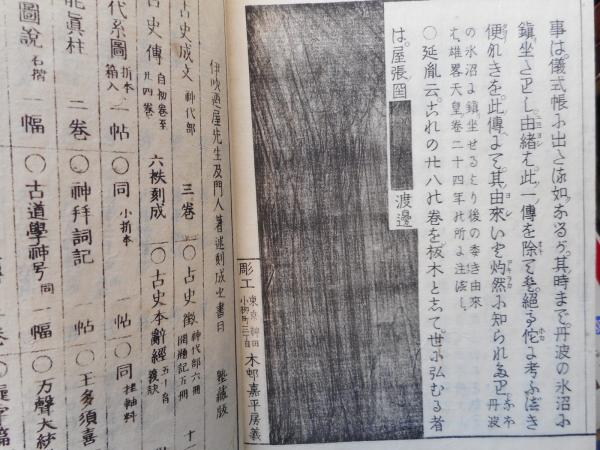 事は。儀式帳に出たる如くなるが。其時まで。丹波の氷沼に
鎮坐されし由緒は。此一傳を除ては。絶て佗に考ふべき
便りきを。此傳よて。其由來いと灼然に知られたり。丹波
の氷沼に鎮坐せるより後の委き由來
は。雄畧天皇卷二十四年の所に注べし。
○延胤云。これの廿八の卷を板木として。世に弘むる者
は。屋張囶
渡邊
彫工
東京神田
小柳町三丁目
木邨嘉平房義
伊吹廼屋先生及門人著述刻成之書目
塾藏版
古史成文 神代部 三卷 ○古史徴 神代部六冊 開題記五冊 十一
古史傳 自初卷至廿四卷 六帙刻成 ○古史本辭經 五十音義訣
代系圖 折本箱入 一帖 ○同 小折本 一帖 ○同 挂軸料
能眞柱 二卷 ○神拜詞記 一帖 ○玉多須喜
圖說 石摺 一幅 ○古道學神号 同 一幅 ○万聲大統